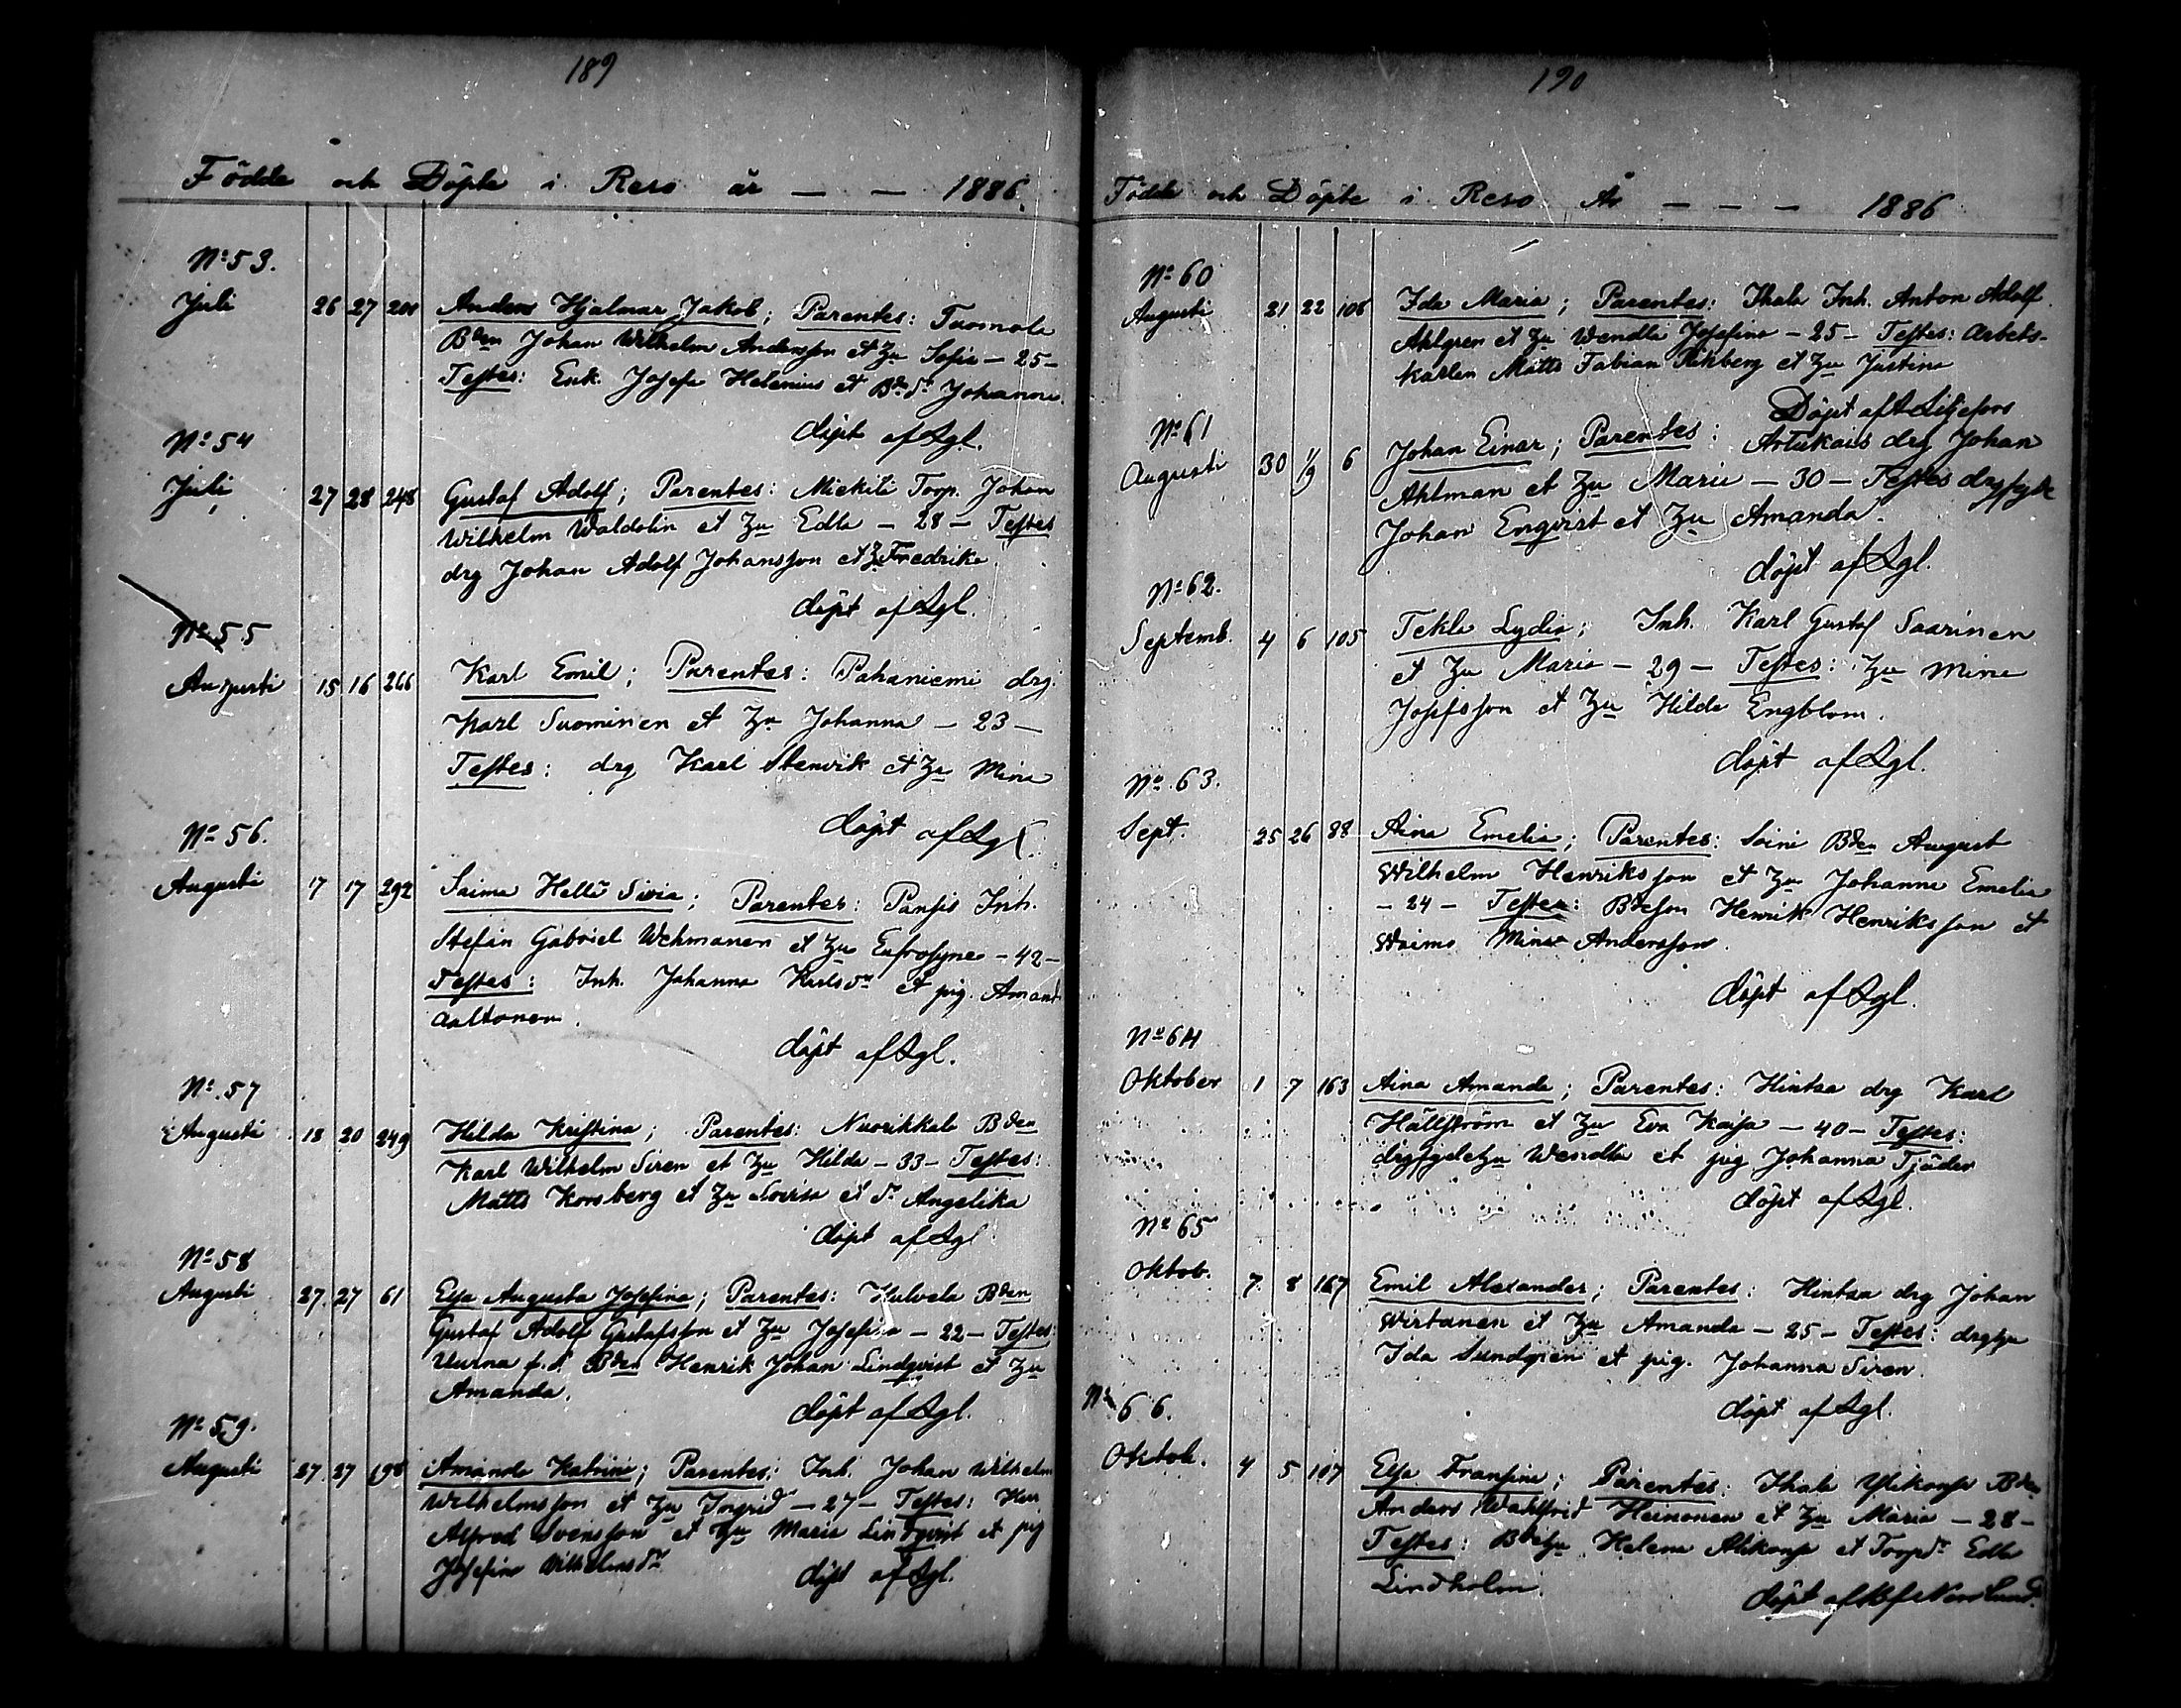 189
Födde och Döpte i Reso år — — 1886.
No 53.
Juli 26 27 201 Anders Hjalmar Jakob; Parentes: Tuomola
Bden Johan Wilhelm Andersson et Hu Sofia — 25 —
Testes: Enk. Josefa Helenius et Bdedr Johanna.
döpt af Lgl.
No 54
Juli 27 28 248 Gustaf Adolf; Parentes: Miekiti Torp. Johan
Wilhelm Waldolin et Hu Edla — 28 — Testes
drg Johan Adolf Johansson et Hu Fredrika.
döpt af Lgl.
No 55
Augusti 15 16 266 Karl Emil; Parentes: Pahaniemi drg.
Karl Suominen et Hu Johanna — 23 —
Testes: drg Karl Stenvik et Hu Mina
döpt af Lgl.
No 56.
Augusti 17 17 292 Saima Helli Sivia; Parentes: Pansis Inh.
Stefan Gabriel Wehmanen et Hu Eufrosyne — 42 —
Testes: Inh. Johanna Karlsdr et pig. Amand
Aaltonen.
döpt af Lgl.
No. 57
Augusti 18 20 249 Hilda Kristina; Parentes: Nuorikkala Bden
Karl Wilhelm Siren et Hu Hilda — 33 — Testes:
Matts Korsberg et Hu Lovisa et dr Angelika
döpt af Lgl
No 58
Augusti 27 27 61 Elsa Augusta Josefina; Parentes: Hulvela Bden
Gustaf Adolf Gustafsson et Hu Josefina — 22 — Testes:
f.d. Bden Henrik Johan Lindqvist et Hu
Amanda.
döpt af Lgl.
No 59.
Augusti 27 27 198 Amanda Katrina; Parentes: Inh. Johan Wilhelm
Wilhelmsson et Hu Ingrid — 27 — Testes:
Alfred Svensson et Hu Maria Lindqvist et pig
Josefina Wilhelmsdr
döpt af Lgl.
190
Födde och Döpte i Reso År — — — 1886
No 60
Augusti 21 22 106 Ida Maria; Parentes: Ihala Inh. Anton Adolf
Ahlgren et Hu Wendla Josefina — 25 — Testes: Arbets-
karlen Matts Fabian et Hu Justina
Döpt af A Liljefors
No 61
Augusti 30 1/9 6 Johan Einar; Parentes: Artukais drg Johan
Ahlman et Hu Maria — 30 — Testes drg
Johan Engvist et Hu Amanda.
döpt af Lgl.
No 62.
Septemb. 4 6 105 Tekla Lydia; Inh. Karl Gustaf Saarinen
et Hu Maria — 29 — Testes: Hu Mina
Josefsson et Hu Hilda Engblom.
döpt af Lgl.
No. 63.
Sept. 25 26 88 Aina Emelia; Parentes: Soini Bden August
Wilhelm Henriksson et Hu Johanna Emelia
— 24 — Testes: Bdeson Henrik Henriksson et
Mina Andersson.
döpt af Lgl.
No 64
Oktober 1 7 163 Aina Amanda; Parentes: Hintsa drg Karl
Hällström et Hu Eva Kajsa — 40 — Testes:
Wendla et pig Johanna Tjäder
döpt af Lgl.
No 65
Oktob. 7 8 167 Emil Alexander; Parentes: Hintsa drg Johan
Wirtanen et Hu Amanda — 25 — Testes: drghu
Ida Sundgren et pig. Johanna Siren.
döpt af Lgl.
No 66.
Oktob. 4 5 107 Elsa Fransina; Parentes: Ihala Ylikonsa Bden
Anders Wahlfrid Heinonen et Hu Maria — 28 —
Testes: Bdehu Helena Alikonsa et Torpdr Edla
Lindholm.
döpt af